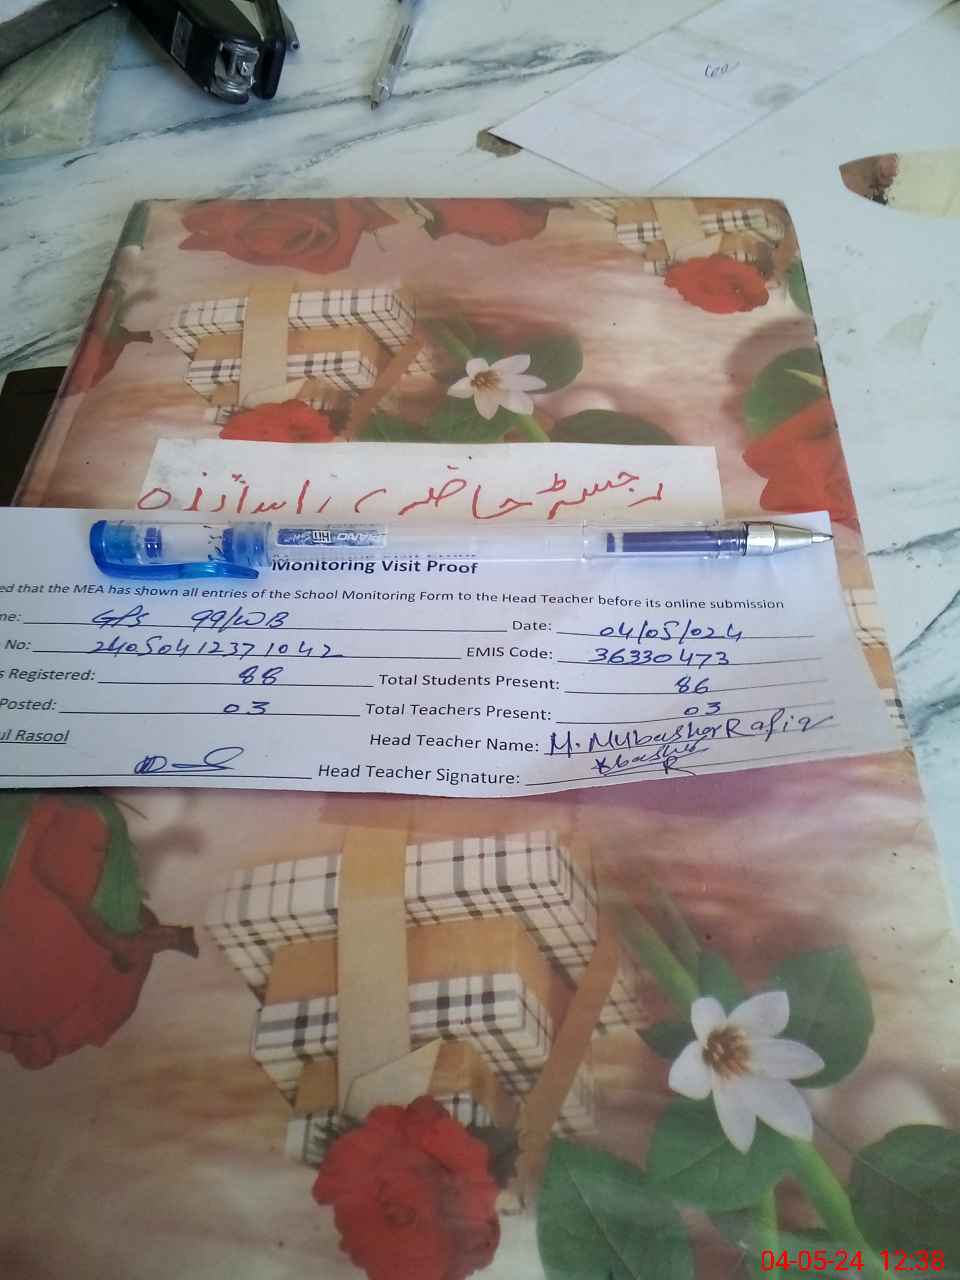 رجسٹر حاضری اساتذہ
Monitoring Visit Proof
ed that the MEA has shown all entries of the School Monitoring Form to the Head Teacher before its online submission
me: GPS 99/WB Date: 04/05/024
No: 24050412371042 EMIS Code: 36330473
s Registered: 88 Total Students Present: 86
Posted: 03 Total Teachers Present: 03
ul Rasool Head Teacher Name: M. Mubasher Rafiq
Head Teacher Signature:
04-05-24 12:38